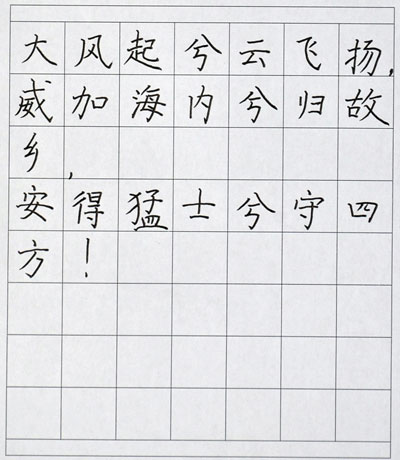 大风起兮云飞扬,
威加海内兮归故
乡,
安得猛士兮守四
方!